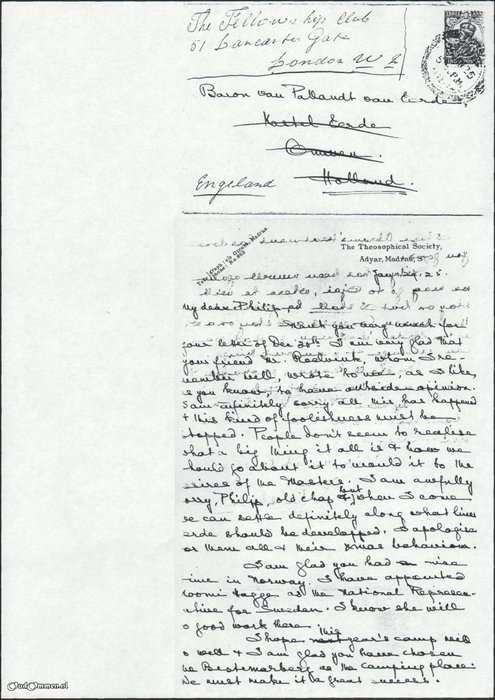 The Fellowship Club
51 Lancaster Gate
London W 2
Baron van Pallandt van Eerde,
Kastel Eerde
Ommen.
Holland.
England
The Theosophical Society,
Adyar, Madras, S.
Jan 25.
My dear Philip
Thank you very much for
your letter of Dec 30th. I am very glad that
your friend Mr Roelvink, whom I re-
member well, wrote to me, as I like,
as you know, to have outside opinion.
I am infinitely sorry all this has happened
& this kind of foolishness must be
stopped. People don't seem to realise
what a big thing it all is & how we
should go about it to mould it to the
service of the Masters. I am awfully
sorry, Philip, old chap & but when I come
we can settle definitely along what lines
Eerde should be developped. I apologise
for them all & their Xmas behaviour.
I am glad you had a nice
time in Norway. I have appointed
Noomi Hagge as the National Represen-
tative for Sweden. I know she will
do good work there
I hope this year's camp will
go well & I am glad you have chosen
the Besthmerberg as the camping place.
We must make it a great success.
OudOmmen.nl